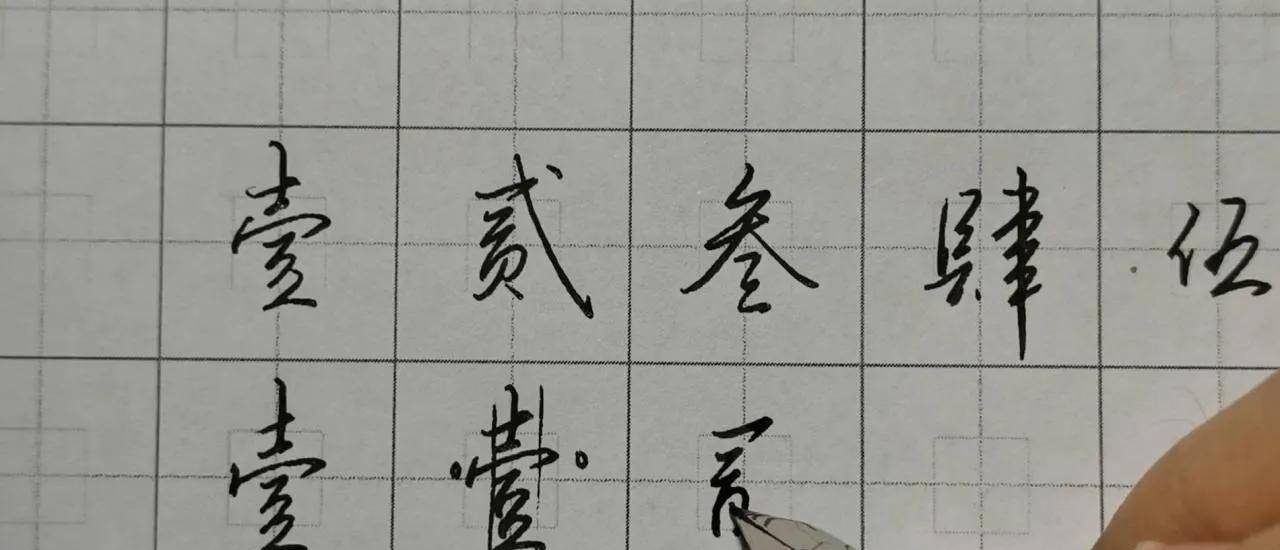 壹贰叁肆伍
壹壹